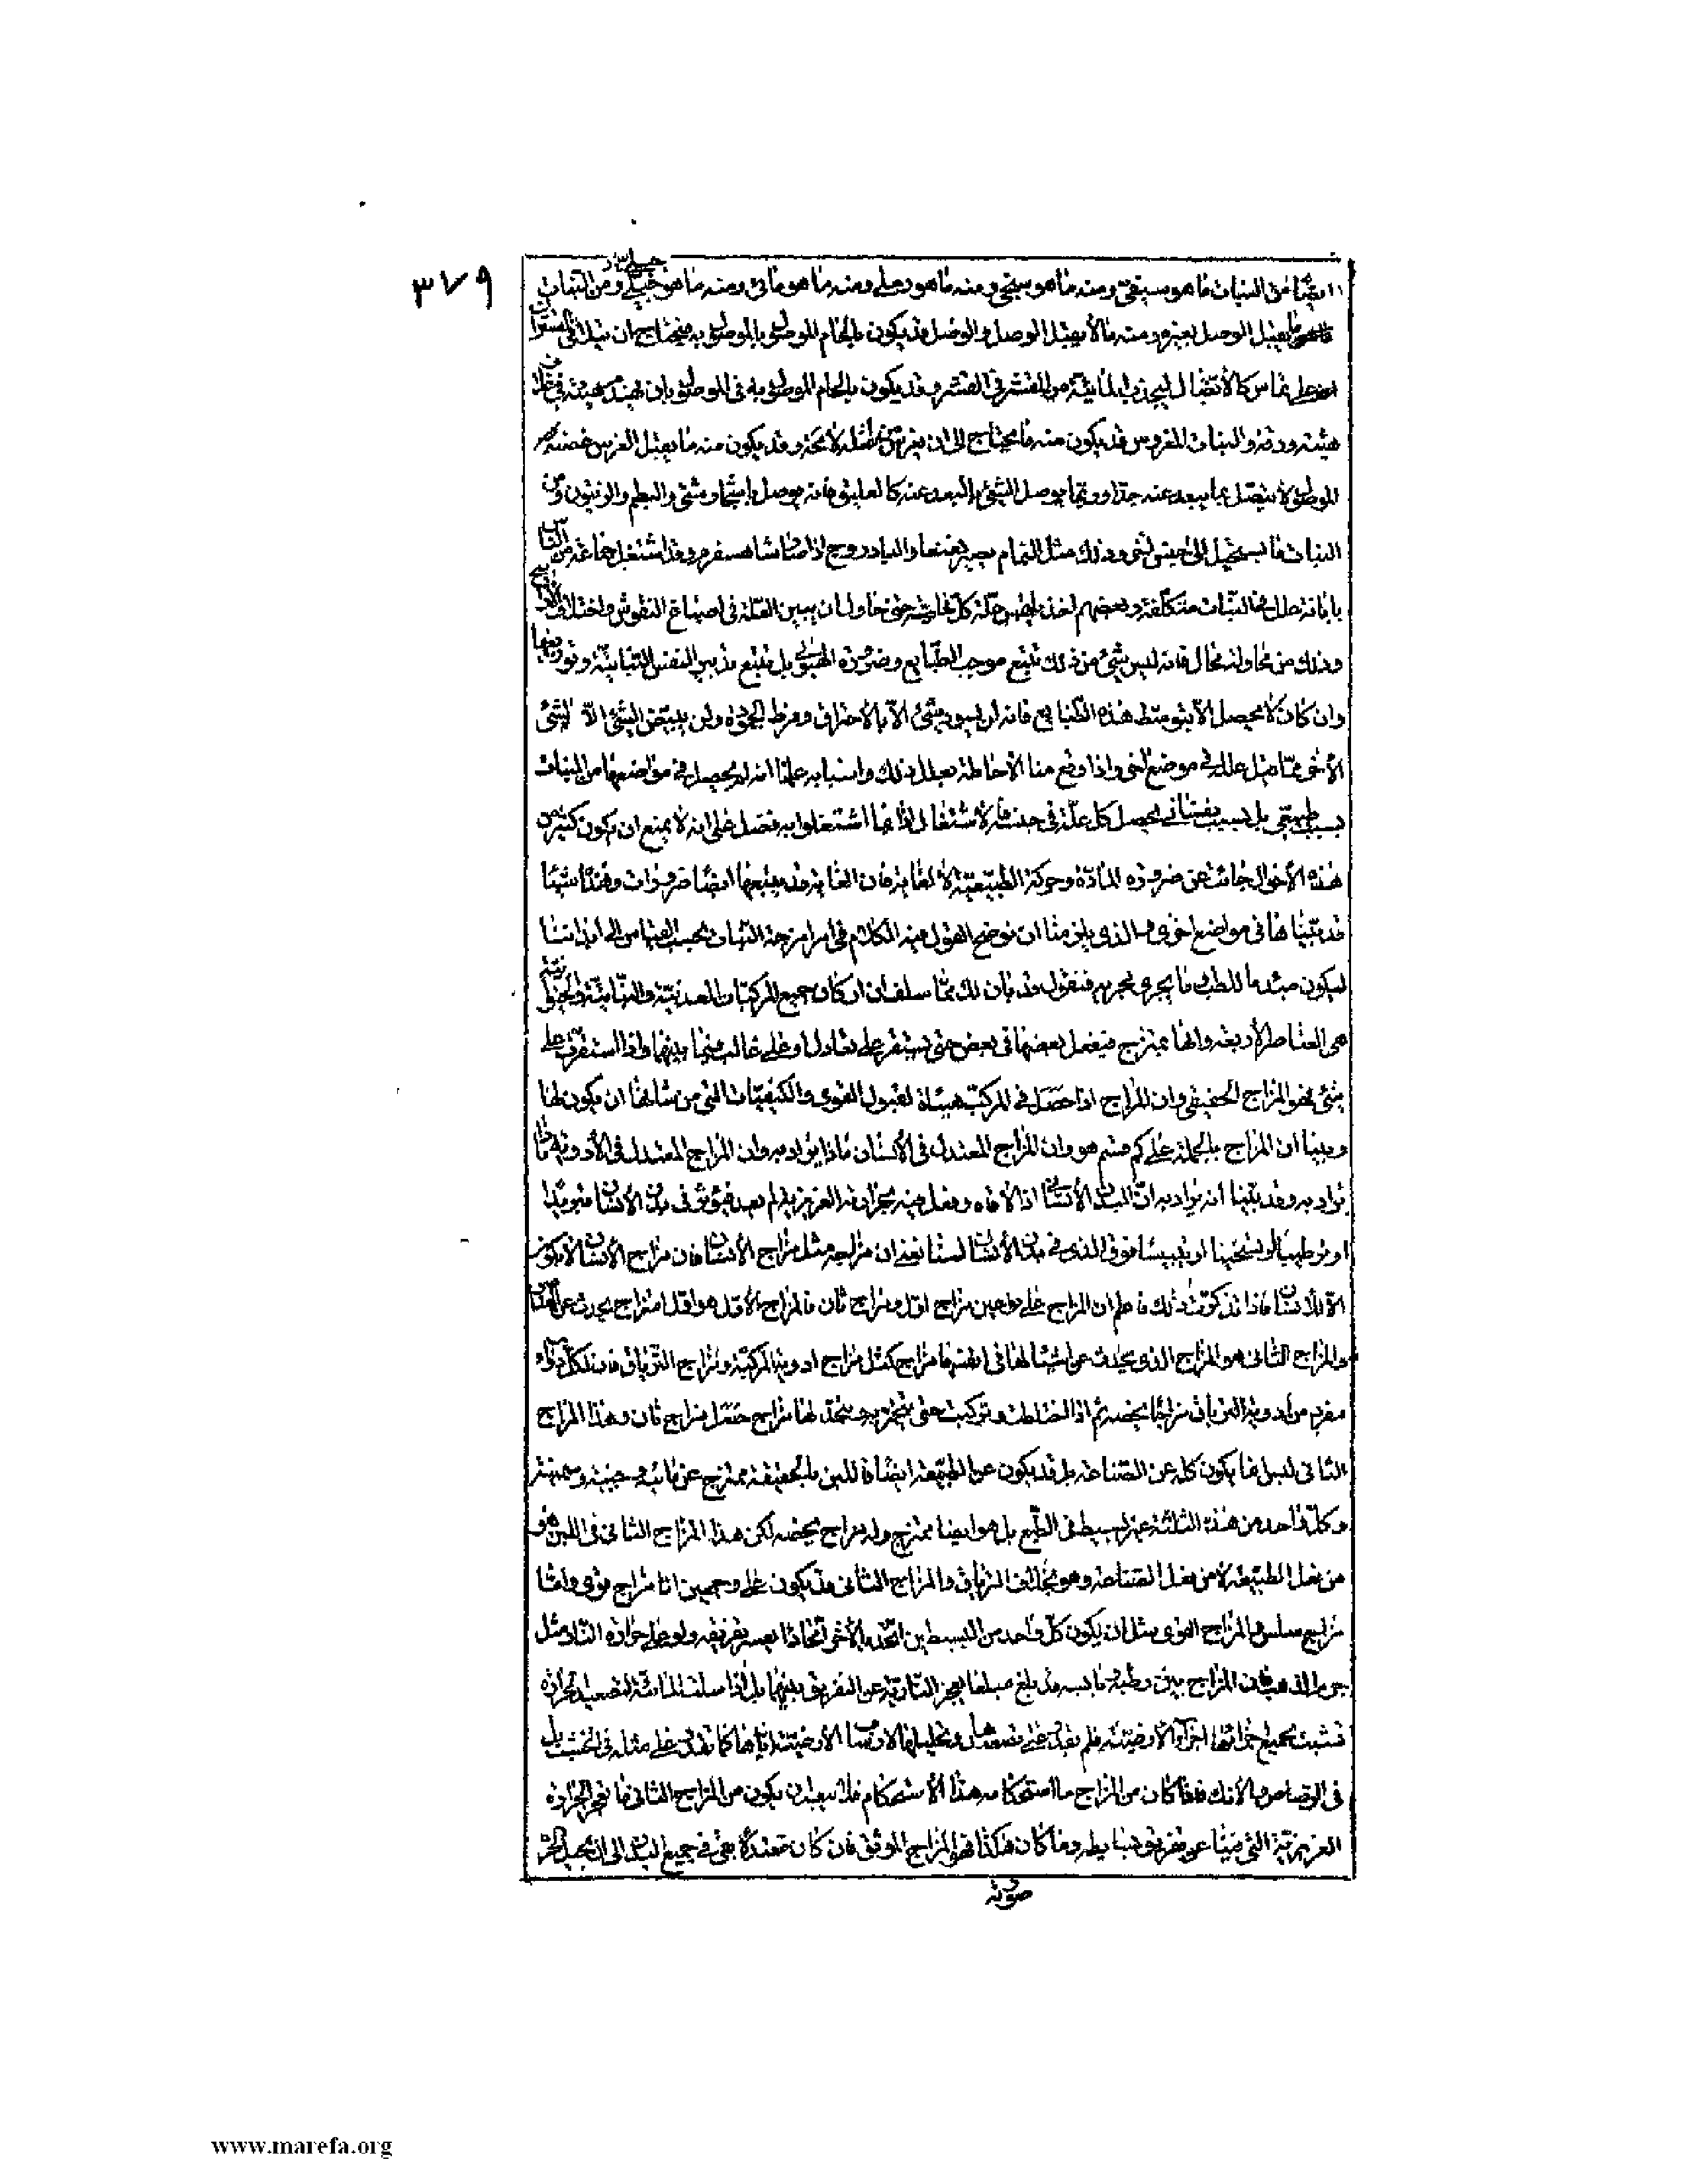 ٣٧٩
ايضا من النبات ما هو سبقى ومنه ما هو سبخى ومنه ما هو رملى ومنه ما هو مائى ومنه ما هو جبلى ومن النبات
يقبل الوصل بغيره ومنه ما لا يقبل الوصل والوصل قد يكون بالحام الموصول بالموصول به فيحتاج ان
كالأتصال ليجذب المائية من القشر فى القشر وقد يكون بالحام الموصول به فى الموصول بان
هيئته ورقة والنبات المغروس قد يكون منه ما يحتاج الى ان يغرس اصله لا محة وقد يكون منه ما يقبل الغرس غصنه
الموصول لا يتصل بما يبعد عنه جدا وربما يوصل الشئ بالبعيد عنه كالعليق فانه يوصل باشياء شتى والبطم والزيتون ومن
النبات ما يستحيل الى جنس اخر وذلك مثل النمام يصير نعنعا والبادروج اذا صار شاهسفرم وقد اشتغل جماعة من الناس
بابانة علل فى النبات متكلفة وبعضهم اخذ يلتمس علة كل حتى حاول ان يبين العلة فى اصباغ النقوش واختلاف
وذلك من محاولة محال فانه ليس شئ من ذلك يتبع موجب الطبايع وضرورة الهيولى بل يتبع تدبير النفس النباتية
وان كان لا يحصل الا بتوسط هذه الطبايع فانه لن يسود شئ الا بالاحتراق وفرط الجمودة ولن يبيض الشئ الا لشئ
الأخر مما قيل علله فى موضع اخر واذا وقع منا الأحاطة بعلل ذلك واسبابه علمنا انه لم يحصل فى مواضعها من النبات
بسبب طبيعى بل بسبب نفسانى يحصل كل علة فى جنسه فالاشتغال اذا بما اشتغلوا به فضل على انه لا يمنع ان يكون كثير من
هذه الأحوال جائت عن ضرورة المادة وحركة الطبيعية لا لغاية فان الغاية قد يتبعها ايضا ضرورات وهذا شيئا
قد بيناها فى مواضع اخرى والذى يلزمنا ان نوضح القول فيه الكلام فى امر امزجة النبات بحسب القياس الى ابداننا
ليكون مبدءا للطب وما يجرى مجريه فنقول قد بان لك مما سلف ان اركان جميع المركبات المعدنية والنباتية والحيوانية
هى العناصر الأربعة وانها تمتزج فيفعل بعضها فى بعض حتى تستقر على تعادل او على غالب فيما بينها واذا استقرت على
شئ فهو المزاج الحقيقى وان المزاج اذا حصل فى المركب هيأه لقبول القوى والكيفيات التى من شانها ان يكون لها
وبينا ان المزاج بالجملة على كم قسم هو وان المزاج المعتدل فى الأنسان ماذا يراد به وان المزاج المعتدل فى الأدوية ماذا
يراد به وقد بينا انه يراد به ان البدن الأنسانى اذا لاقاه وفعل فيه بحرارته الغريزية لم يبعد فيؤثر فى بدن الأنسان تبريدا
او ترطيبا او تسخينا او تيبيسا فوق الذى فى بدن الأنسان لسنا نعنى ان مزاجه مثل مزاج الأنسان فان مزاج الأنسان لا يكون
الا للأنسان فاذا تذكرت ذلك فاعلم ان المزاج على نوعين مزاج اول ومزاج ثان فالمزاج الأول هو اول مزاج يحدث عن العناصر
والمزاج الثانى هو المزاج الذى يحدث عن اشياء لها فى انفسها مزاج كمثل مزاج ادوية المركبة ومزاج الترياق فان لكل دواء
مفرد من ادوية الترياق مزاجا يخصه ثم اذا اختلطت وتركبت حتى تمتزج ويتحد لها مزاج حصل مزاج ثان وهذا المزاج
الثانى ليس انما يكون كله عن الصناعة بل قد يكون عن الطبيعة ايضا فان اللبن بالحقيقة ممتزج عن مائية وجبنية وسمنية
وكل واحد من هذه الثلثة غير بسيط فى الطبع بل هو ايضا ممتزج وله مزاج يخصه لكن هذا المزاج الثانى فى اللبن هو
من فعل الطبيعة لا من فعل الصناعة وهو بخلاف الترياق والمزاج الثانى قد يكون على وجهين اما مزاج قوى واما
مزاج سلس والمزاج القوى مثل ان يكون كل واحد من البسيطين اتحد بالأخر اتحادا يعسر تفريقه ولو على حرارة النار مثل
جرم الذهب فان المزاج بين رطبه ويابسه قد بلغ مبلغا يعجز النارية عن التفريق بينهما بل اذا سيلت المائية لتصعيد الحرارة
تشبث بجميع اجزائها اجزاء الأرضية فلم يقدر على تصعيدها وتحليلها لارساب الأرضية اياها كما تقدر على مثله فى الخشب بل
فى الرصاص والانك فاذا كان من المزاج ما استحكامه هذا الأستحكام فلا يبعد ان يكون من المزاج الثانى ما يعجز الحرارة
الغريزية التى فينا عن تفريق بسايطه وما كان هكذا فهو المزاج الموثق فان كان معتدلا بقى فى جميع البدن الى ان يحيل
صورته
www.marefa.org